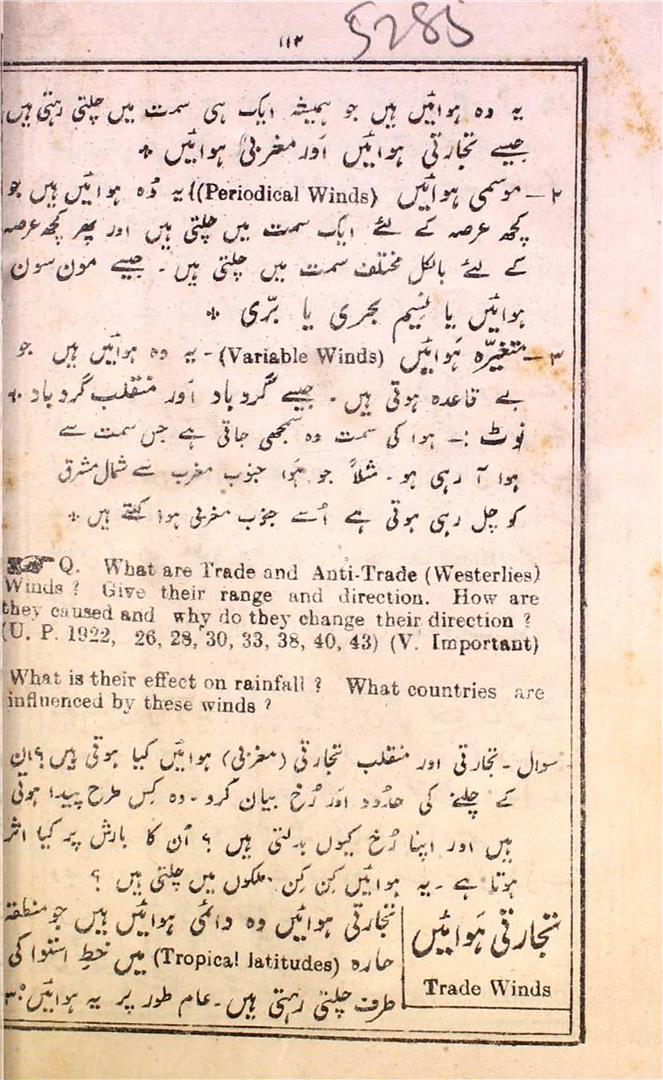 ۱۱۳
5285
یہ وہ ہوائیں ہیں جو ہمیشہ ایک ہی سمت میں چلتی رہتی ہیں
جیسے تجارتی ہوائیں اَور مغربی ہوائیں *
۲ – موسمی ہوائیں (Periodical Winds) یہ وُہ ہوائیں ہیں جو
کچھ عرصہ کے لئے ایک سمت میں چلتی ہیں اور پھر کچھ عرصہ
کے لئے بالکل مختلف سمت میں چلتی ہیں ۔ جیسے مون سون
ہوائیں یا نسیم بحری یا برّی *
۳ – متغیّرہ ہَوائیں (Variable Winds) - یہ وہ ہوائیں ہیں جو
بے قاعدہ ہوتی ہیں ۔ جیسے گردباد اَور منقلب گردباد *
نوٹ :- ہوا کی سمت وہ سمجھی جاتی ہے جس سمت سے
ہوا آ رہی ہو ۔ مثلاً جو ہَوا جنوب مغرب سے شمال مشرق
کو چل رہی ہوتی ہے اُسے جنوب مغربی ہوا کہتے ہیں *
☞ Q. What are Trade and Anti-Trade (Westerlies)
Winds ? Give their range and direction. How are
they caused and why do they change their direction ?
(U. P. 1922, 26, 28, 30, 33, 38, 40, 43) (V. Important)
What is their effect on rainfall ? What countries are
influenced by these winds ?
سوال ۔ تجارتی اور منقلب تجارتی (مغربی) ہوائیں کیا ہوتی ہیں ؟ اِن
کے چلنے کی حدُود اَور رُخ بیان کرو ۔ وہ کِس طرح پیدا ہوتی
ہیں اور اپنا رُخ کیوں بدلتی ہیں ؟ اُن کا بارش پر کیا اثر
ہوتا ہے ۔ یہ ہوائیں کِن کِن ملکوں میں چلتی ہیں ؟
تجارتی ہَوائیں
Trade Winds
تجارتی ہوائیں وہ دائمی ہوائیں ہیں جو منطقہ
حارہ (Tropical latitudes) میں خطِ استوا کی
طرف چلتی رہتی ہیں ۔ عام طور پر یہ ہوائیں ۳۰°